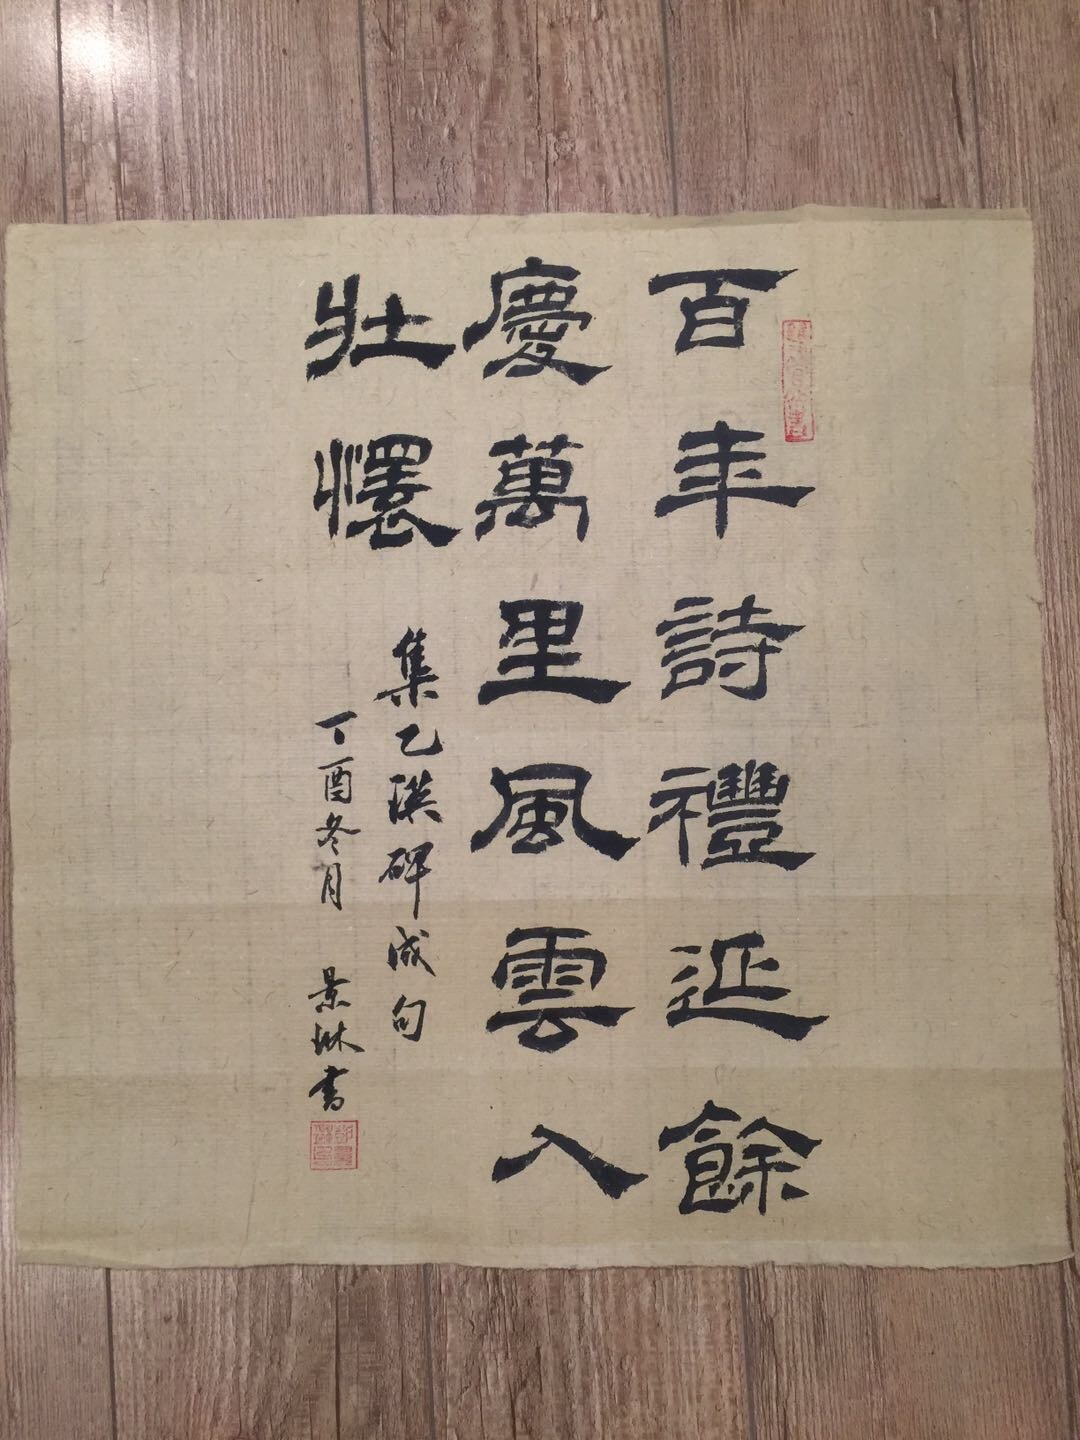 百年詩禮延餘
慶萬里風雲入
壯懷
集乙瑛碑成句
丁酉冬月 景琳書